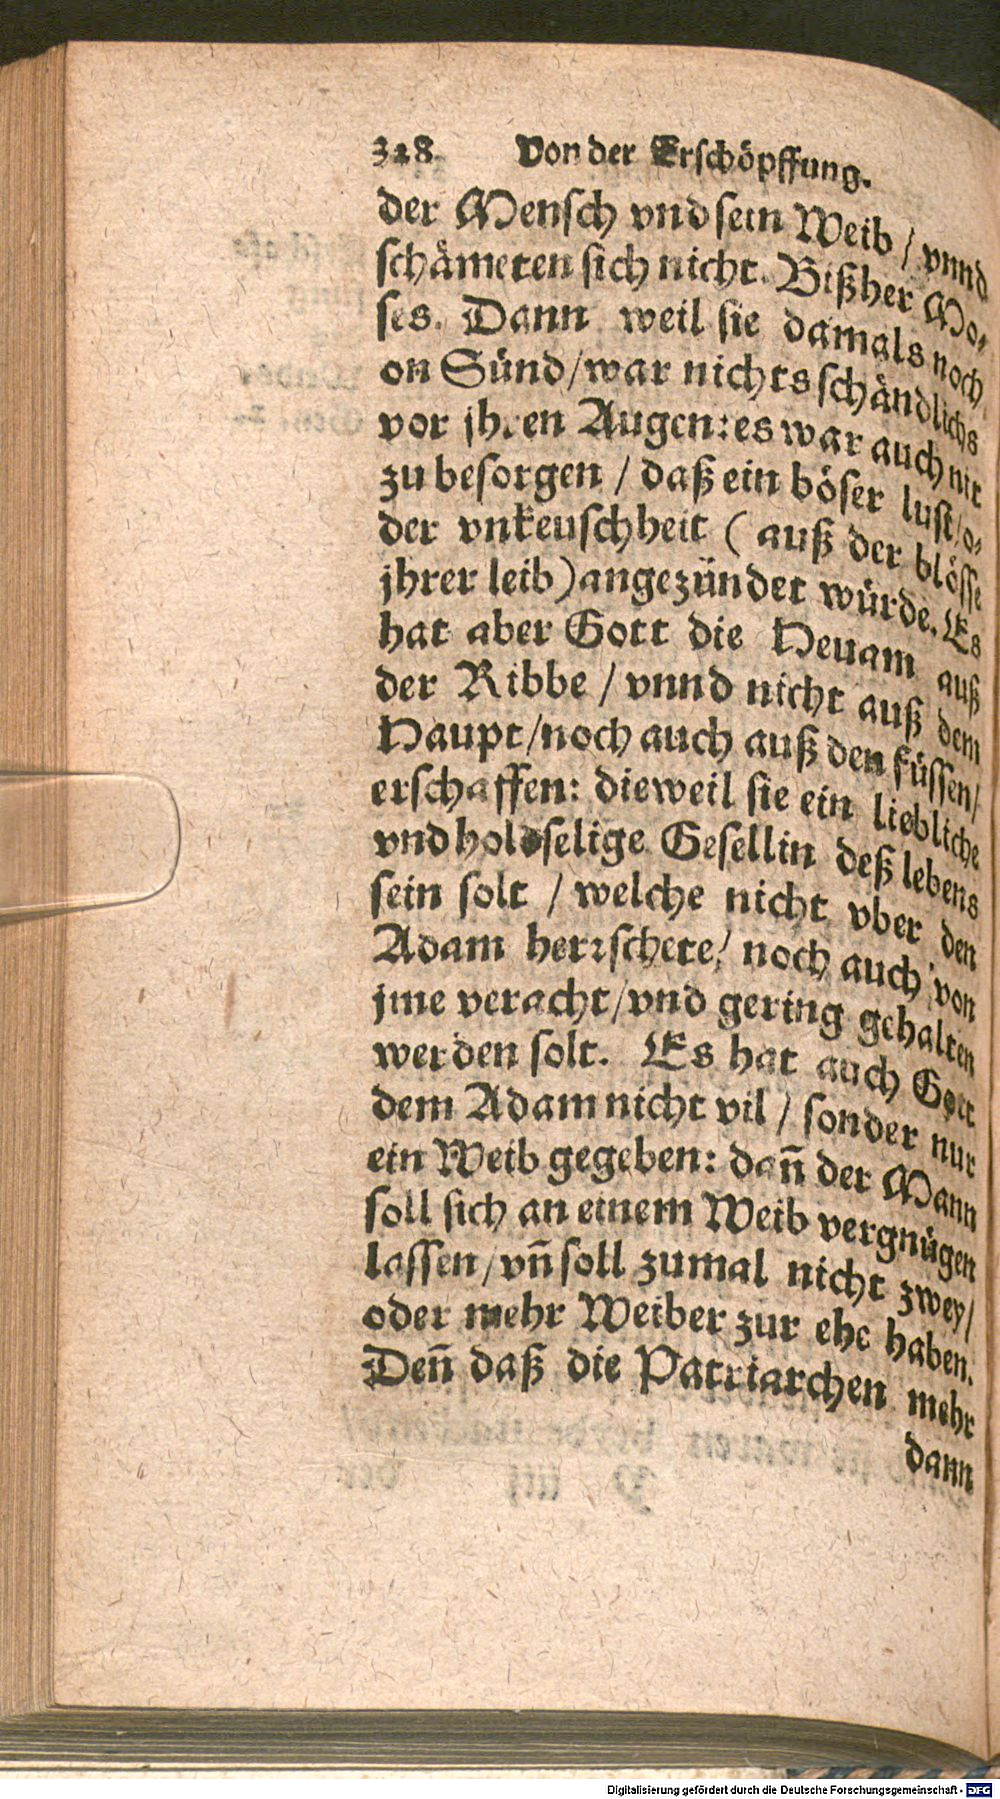 328. Von der Erschöpffung.
der Mensch vnd sein Weib / vnnd
schämeten sich nicht. Bißher Mo-
ses. Dann weil sie damals noch
on Sünd / war nichts schändlichs
vor jhren Augen: es war auch nit
zu besorgen / daß ein böser lust / o-
der vnkeuschheit ( auß der blösse
jhrer leib ) angezündet würde. Es
hat aber Gott die Heuam auß
der Ribbe / vnnd nicht auß dem
Haupt / noch auch auß den füssen /
erschaffen: dieweil sie ein liebliche
vnd holdselige Gesellin deß lebens
sein solt / welche nicht vber den
Adam herrschete / noch auch von
jme veracht / vnd gering gehalten
werden solt. Es hat auch Gott
dem Adam nicht vil / sonder nur
ein Weib gegeben: dañ der Mann
soll sich an einem Weib vergnügen
lassen / vñ soll zumal nicht zwey /
oder mehr Weiber zur ehe haben.
Deñ daß die Patriarchen mehr
dann
Digitalisierung gefördert durch die Deutsche Forschungsgemeinschaft - DFG